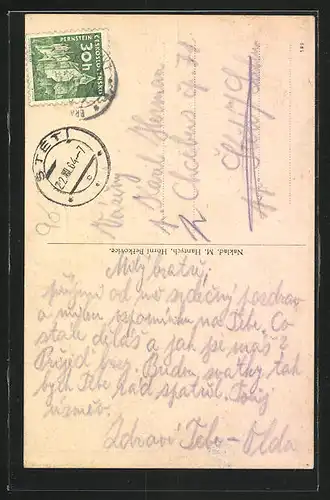 ČESKOSLOVENSKO
30h
PERNŠTEJN
ŠTĚTÍ
22.XII.64-7
c
90
Vážený
p. Karel Herman
Chcebus čp 71
p.
Naklad. M. Hanzych, Horní Beřkovice.
Milý bratře,
přijmi od mě srdečný pozdrav
a milou vzpomínku na Tebe. Co
stále děláš a jak se máš?
Přijeď brzy. Budou svátky tak
bych Tebe rád spatřil. Tvůj
Zdraví Tebe - Olda